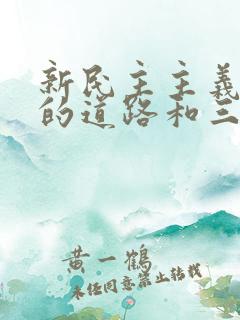 新民主主義
的道路和三
黄一鶴
未经同意禁止转载